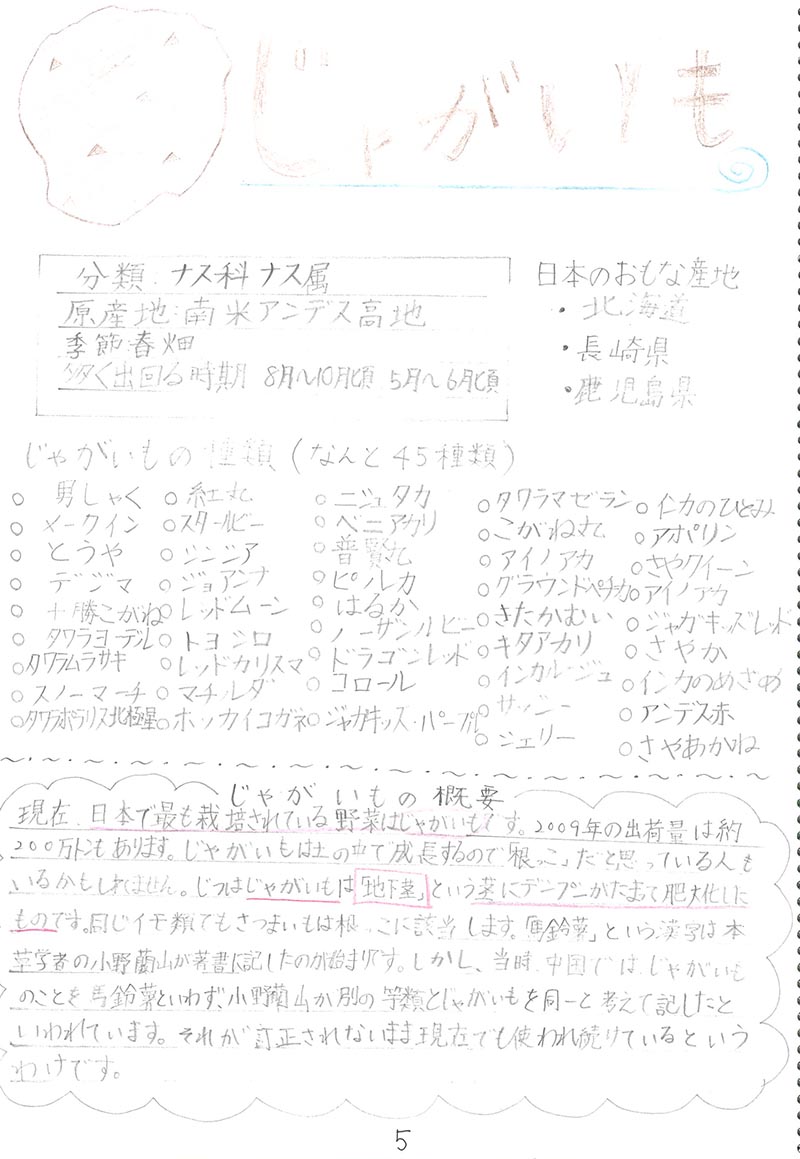 じゃがいも
分類:ナス科ナス属
原産地:南米アンデス高地
季節:春畑
多く出回る時期 8月〜10月頃 5月〜6月頃
日本のおもな産地
・北海道
・長崎県
・鹿児島県
じゃがいもの種類(なんと45種類)
○男しゃく
○メークイン
○とうや
○デジマ
○十勝こがね
○タワラヨーデル
○タワラムラサキ
○スノーマーチ
○タワラポラリス北極星
○紅丸
○スタールビー
○シンシア
○ジョアンナ
○レッドムーン
○トヨシロ
○レッドカリスマ
○マチルダ
○ホッカイコガネ
○ニシユタカ
○ベニアカリ
○普賢丸
○ピルカ
○はるか
○ノーザンルビー
○ドラゴンレッド
○コロール
○ジャガキッズ・パープル
○タワラマゼラン
○こがね丸
○アイノアカ
○グラウンドペチカ
○きたかむい
○キタアカリ
○インカルージュ
○サッシー
○シェリー
○インカのひとみ
○アポリン
○さやクイーン
○アイノアカ
○ジャガキッズレッド
○さやか
○インカのめざめ
○アンデス赤
○さやあかね
じゃがいもの概要
現在、日本で最も栽培されている野菜はじゃがいもです。2009年の出荷量は約
200万トンもあります。じゃがいもは土の中で成長するので「根っこ」だと思っている人も
いるかもしれません。じつはじゃがいもは「地下茎」という茎にデンプンがたまって肥大化した
ものです。同じイモ類でもさつまいもは根っこに該当します。「馬鈴薯」という漢字は本
草学者の小野蘭山が著書に記したのが始まりです。しかし、当時、中国では、じゃがいも
のことを馬鈴薯といわず、小野蘭山が別の等類とじゃがいもを同一と考えて記したと
いわれています。それが訂正されないまま現在でも使われ続けているという
わけです。
5